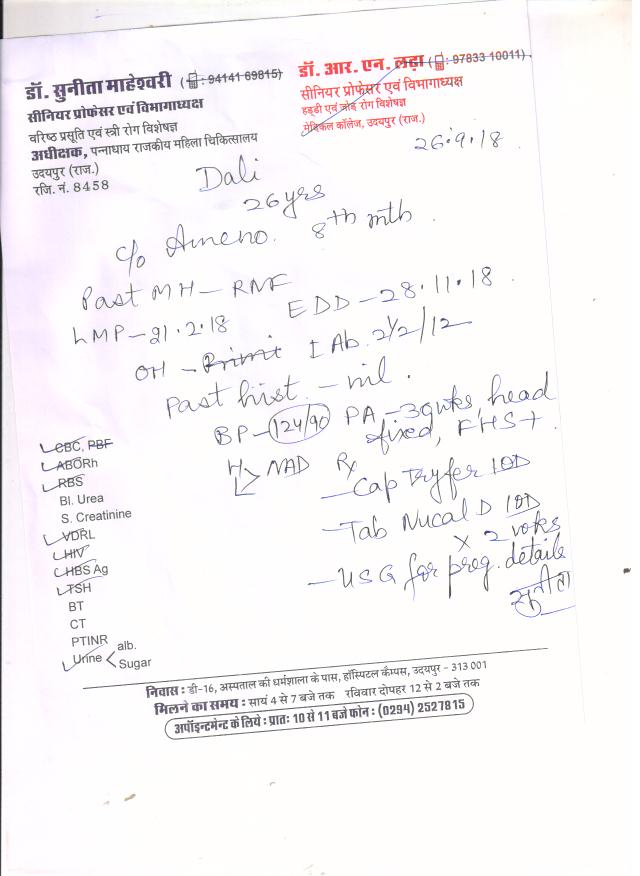 डॉ. सुनीता माहेश्वरी (: 94141 69815)
सीनियर प्रोफेसर एवं विभागाध्यक्ष
वरिष्ठ प्रसूति एवं स्त्री रोग विशेषज्ञ
अधीक्षक, पन्नाधाय राजकीय महिला चिकित्सालय
उदयपुर (राज.)
रजि. नं. 8458
डॉ. आर. एन. लढ़ा (: 97833 10011)
सीनियर प्रोफेसर एवं विभागाध्यक्ष
हड्डी एवं जोड़ रोग विशेषज्ञ
मेडिकल कॉलेज, उदयपुर (राज.)
26.9.18
Dali
26 yrs
c/o Ameno. 8th mth.
Past MH – RMF
LMP – 21.2.18 EDD – 28.11.18
OH – Primi I Ab. 2½/12
Past hist. – nil.
BP – 124/90 PA – 30 wks, head
fixed, FHS +
H NAD Rx
– Cap Tryfer 1OD
– Tab Nucal D 1OD
x 2
– USG for preg. details
सुनीता
CBC, PBF
ABORh
RBS
Bl. Urea
S. Creatinine
VDRL
HIV
HBS Ag
TSH
BT
CT
PTINR
Urine < alb.
Sugar
निवास : डी-16, अस्पताल की धर्मशाला के पास, हॉस्पिटल कैम्पस, उदयपुर - 313 001
मिलने का समय : सायं 4 से 7 बजे तक रविवार दोपहर 12 से 2 बजे तक
अपॉइन्टमेन्ट के लिये : प्रातः 10 से 11 बजे फोन : (0294) 2527815